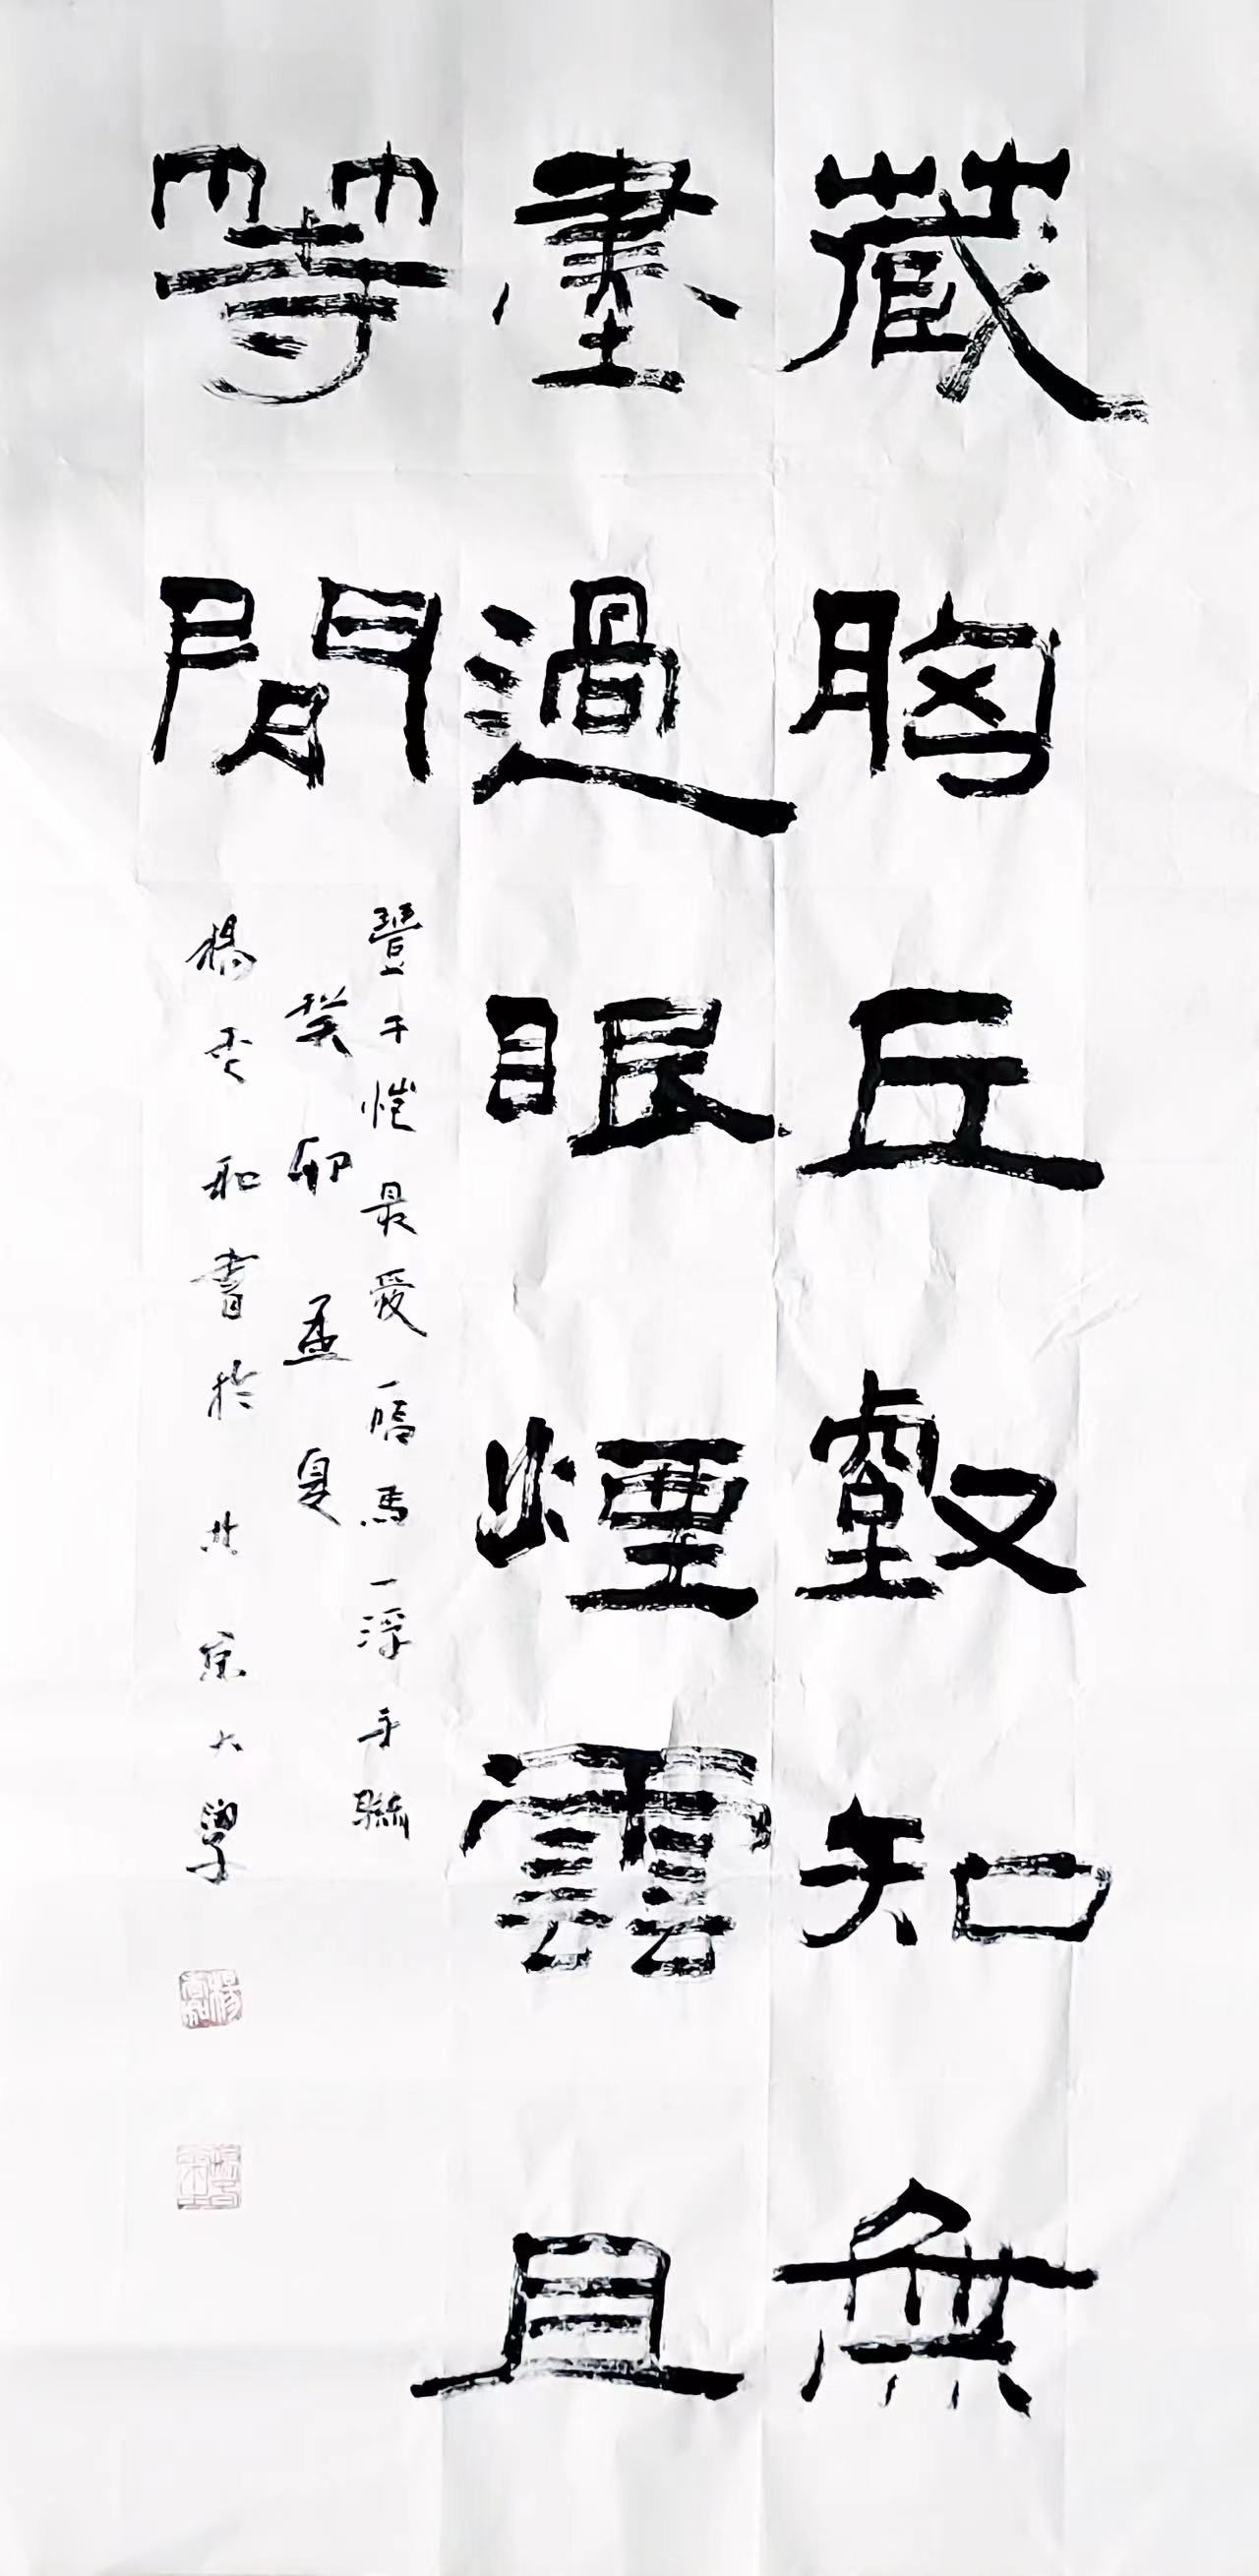 藏胸丘壑知無
盡過眼煙雲且
等閒
豐子愷最愛一幅馬一浮手聯
癸卯孟夏
楊云和書於北京大學